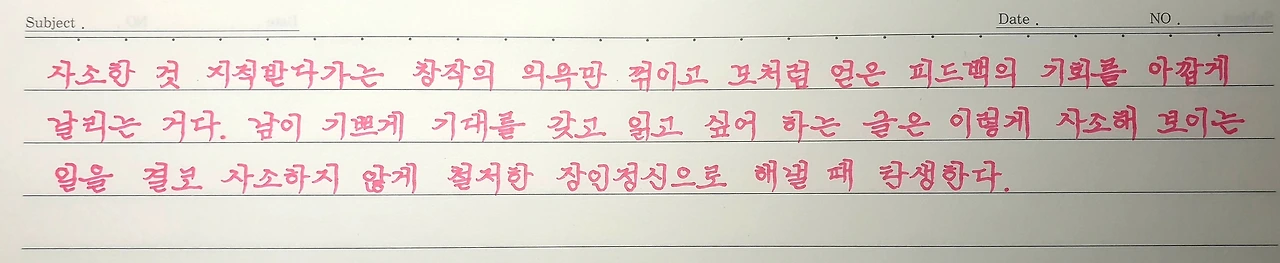 Subject . Date . NO .
사소한 것 지적한다가는 창작의 의욕만 꺾이고 모처럼 얻은 피드백의 기회를 아깝게
날리는 거다. 남이 기쁘게 기대를 갖고 읽고 싶어 하는 글은 이렇게 사소해 보이는
일을 결코 사소하지 않게 철저한 장인정신으로 해낼 때 탄생한다.